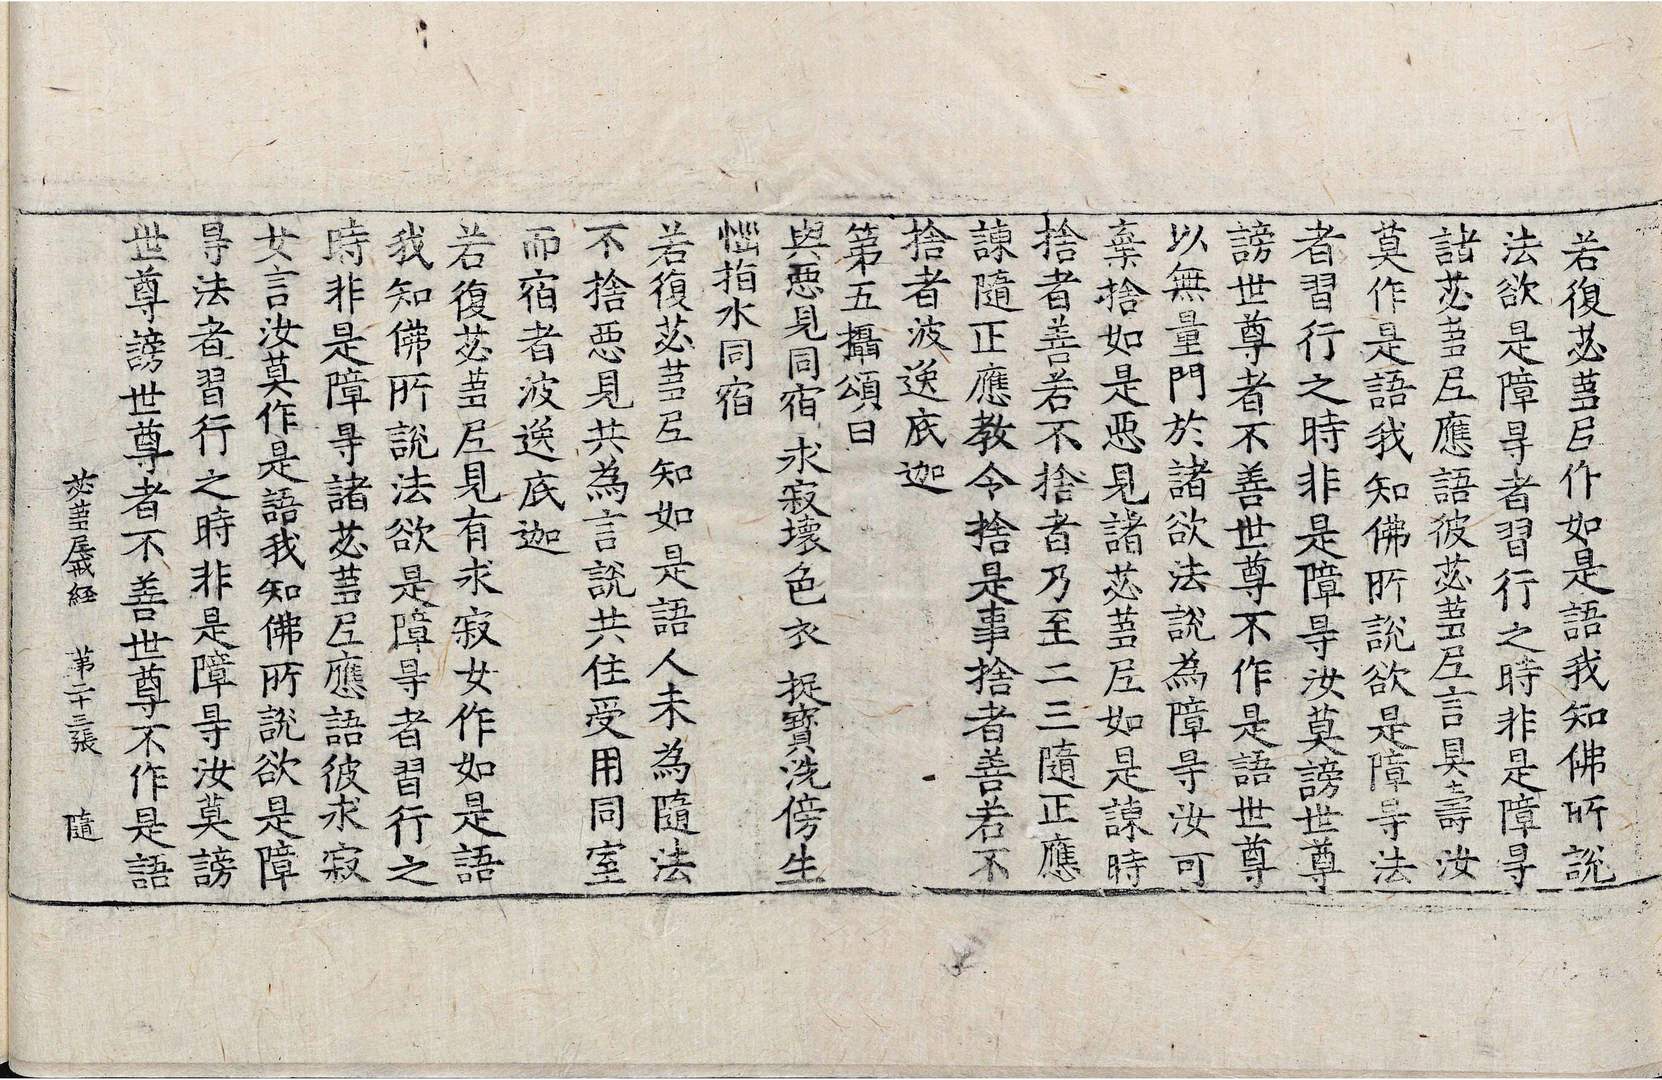 若復苾蒭尼作如是語我知佛所說
法欲是障㝵者習行之時非是障㝵
諸苾蒭尼應語彼苾蒭尼言具壽汝
莫作是語我知佛所說欲是障㝵法
者習行之時非是障㝵汝莫謗世尊
謗世尊者不善世尊不作是語世尊
以無量門於諸欲法說為障㝵汝可
棄捨如是惡見諸苾蒭尼如是諫時
捨者善若不捨者乃至二三隨正應
諫隨正應教令捨是事捨者善若不
捨者波逸底迦
第五攝頌曰
與惡見同宿 求寂壞色衣 捉寶洗傍生
惱指水同宿
若復苾蒭尼知如是語人未為隨法
不捨惡見共為言說共住受用同室
而宿者波逸底迦
若復苾蒭尼見有求寂女作如是語
我知佛所說法欲是障㝵者習行之
時非是障㝵諸苾蒭尼應語彼求寂
女言汝莫作是語我知佛所說欲是障
㝵法者習行之時非是障㝵汝莫謗
世尊謗世尊者不善世尊不作是語
苾蒭尼戒経 第二十三張 隨